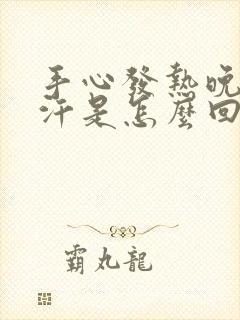 手心發熱晚
汗是怎麼回
霸丸龍